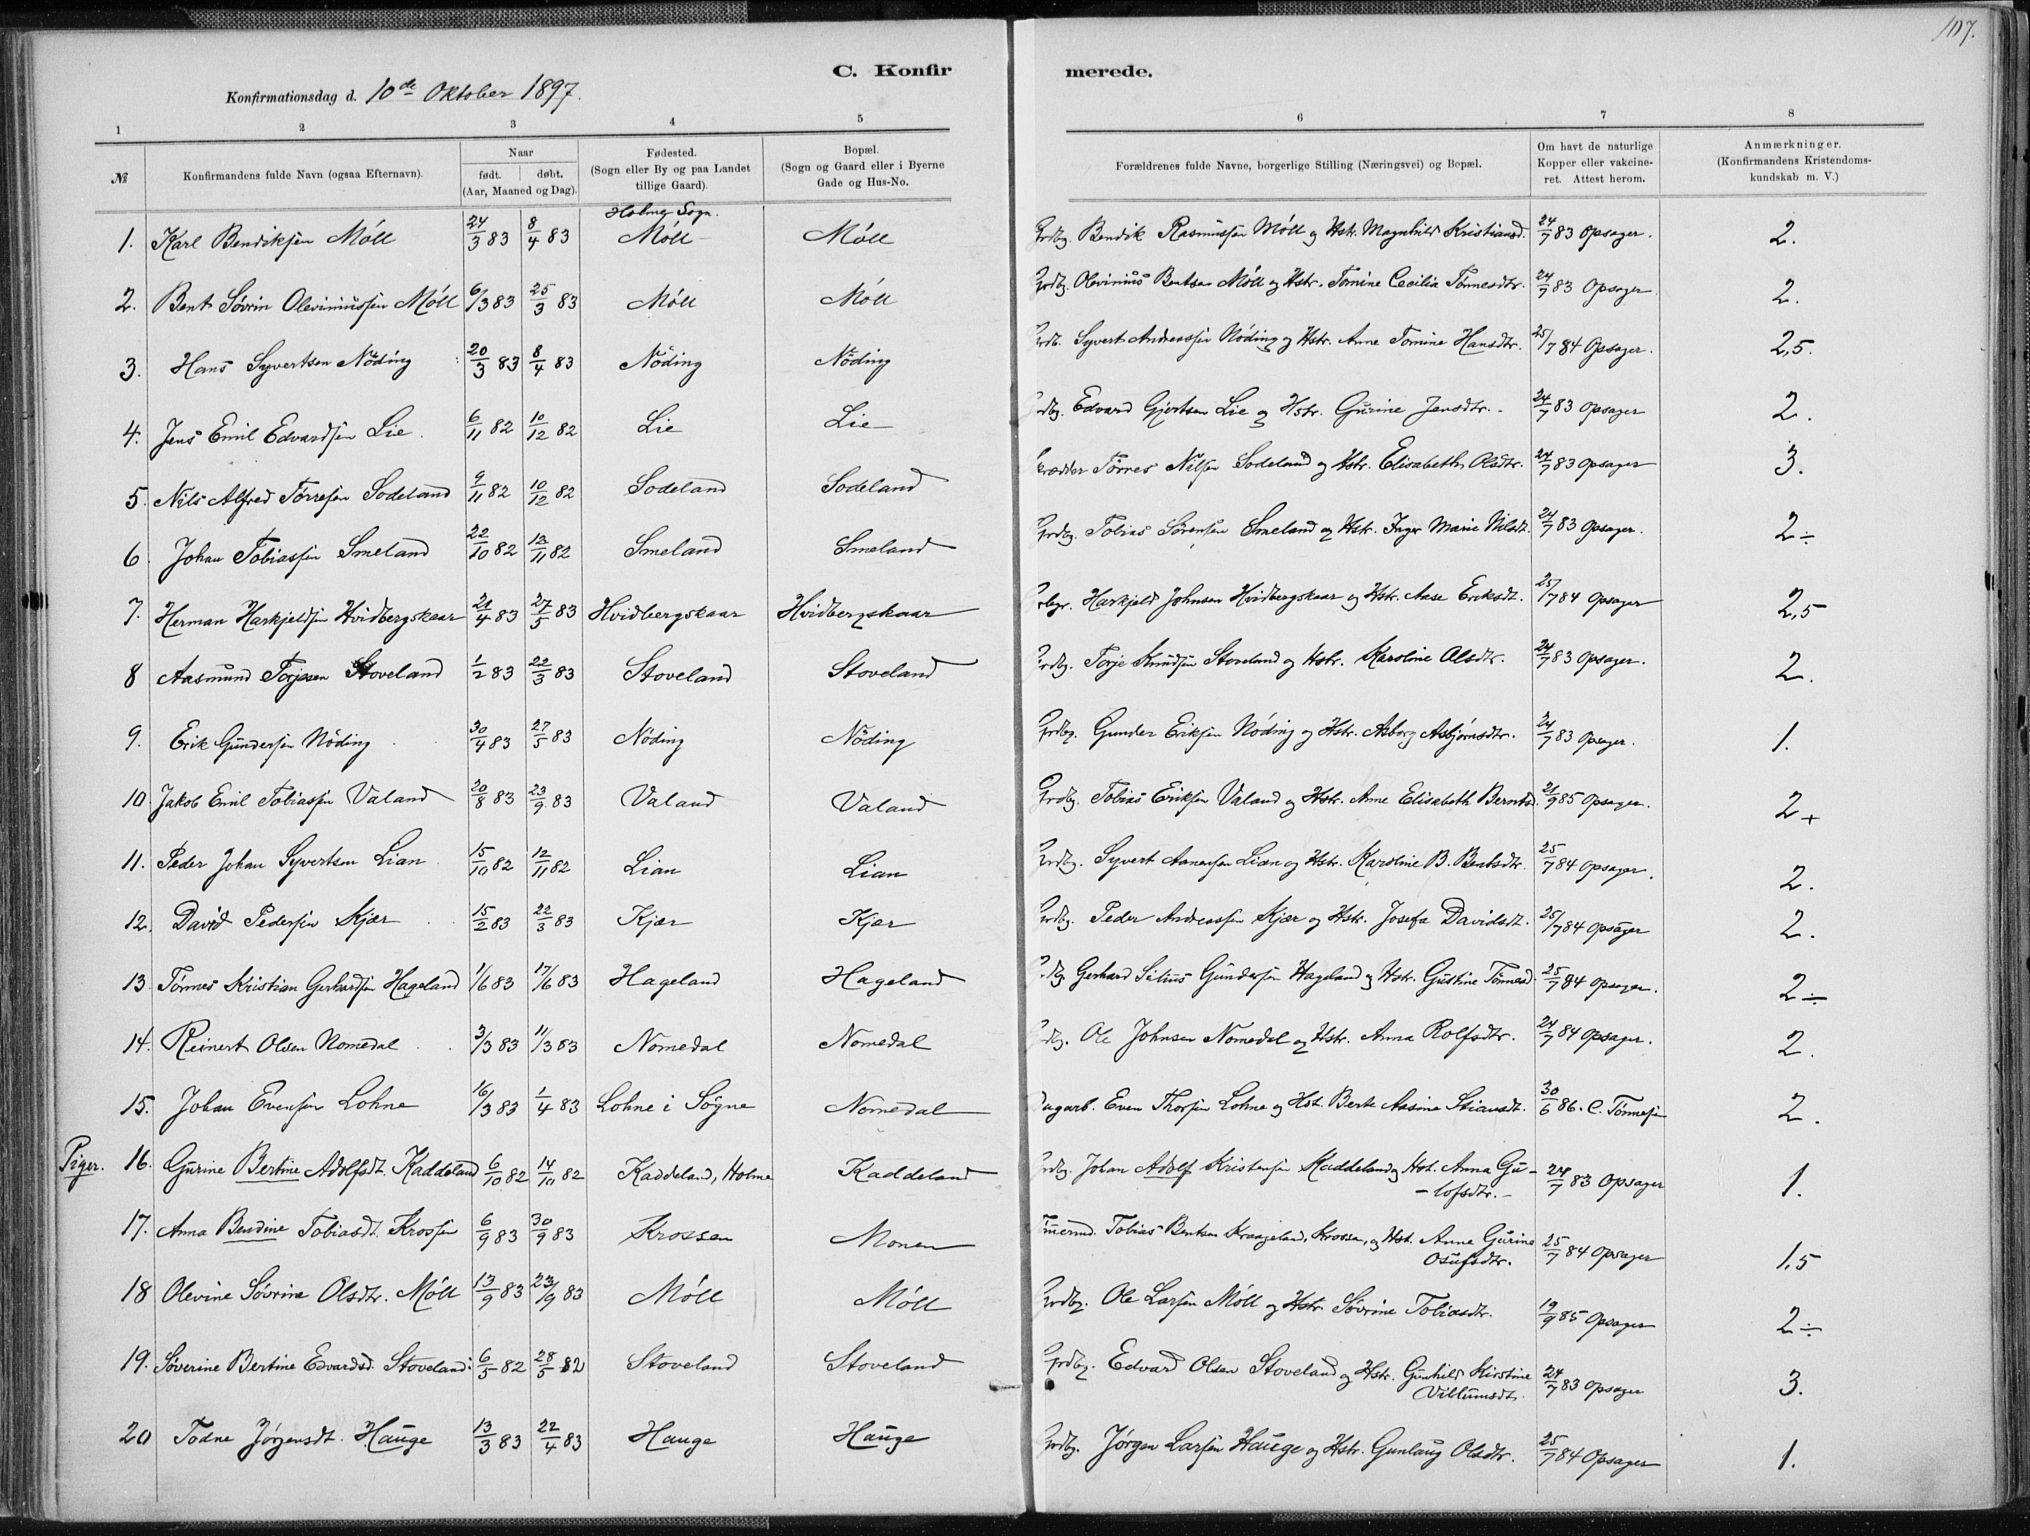 107.
C. Konfirmerede.
Konfirmationsdag d. 10de Oktober 1897.
1 2 3 4 5 6 7 8
№ Konfirmandens fulde Navn (ogsaa Efternavn). Naar født. døbt. (Aar, Maaned og Dag). Fødested. (Sogn eller By og paa Landet tillige Gaard). Bopæl. (Sogn og Gaard eller i Byerne Gade og Hus-No. Forældrenes fulde Navne, borgerlige Stilling (Næringsvei) og Bopæl. Om havt de naturlige Kopper eller vakcineret. Attest herom. Anmærkninger. (Konfirmandens Kristendomskundskab m. V.)
Holme Sogn.
1. Karl Bendiksen Möll 24/3 83 8/4 83 Möll Möll Grdbg. Bendik Rasmussen Möll og Hstr. Magnhild Kristiansd. 24/7 83 Opsager. 2.
2. Bent Sövrin Oleviniussen Möll 6/3 83 25/3 83 Möll Möll Grdbg. Olevinius Bentsen Möll og Hstr. Tomine Cecilia Tönnesdtr. 24/7 83 Opsager 2.
3. Hans Syvertsen Nöding 20/3 83 8/4 83 Nöding Nöding Grdb. Syvert Andreassen Nöding og Hstr. Anne Tomine Hansdtr. 25/7 84 Opsager. 2,5.
4. Jens Emil Edvardsen Lie. 6/11 82 10/12 82 Lie Lie Grdbg. Edvard Gjertsen Lie og Hstr. Gurine Jensdtr. 24/7 83 Opsager 2.
5. Nils Alfred Törresen Sodeland 9/11 82 10/12 82 Sodeland Sodeland Skrædder Törres Nilsen Sodeland og Hstr. Elisabeth Olsdtr. 24/7 83 Opsager 3.
6. Johan Tobiassen Smeland 22/10 82 12/11 82 Smeland Smeland Grdbg. Tobias Sörensen Smeland og Hstr. Inger Marie Nilsdt. 24/7 83 Opsager. 2÷
7. Herman Harkjeldsen Hvidbergskaar 21/4 83 27/5 83 Hvidbergskaar Hvidbergskaar Harkjeld Johnsen Hvidbergskaar og Hstr. Aase Eriksdt. 25/7 84 Opsager 2,5
8 Aasmund Torjesen Stoveland 1/2 83 22/3 83 Stoveland Stoveland Grdbg. Torje Knudsen Stoveland og Hstr. Karoline Olsdtr. 24/7 83 Opsager. 2.
9. Erik Gundersen Nöding 30/4 83 27/5 83 Nöding Nöding Grdbg. Gunder Eriksen Nöding og Hstr. Asborg Asbjörnsdtr. 24/7 83 Opsager. 1.
10 Jakob Emil Tobiassen Valand 20/8 83 23/9 83 Valand Valand Grdbg. Tobias Eriksen Valand og Hstr. Anne Elisabeth Berntsd. 21/9 85 Opsager. 2+
11. Peder Johan Syvertsen Lian 15/10 82 12/11 82 Lian Lian Grdbg. Syvert Aanensen Lian og Hstr. Karoline B. Bentsdtr. 25/7 84 Opsager. 2.
12. David Pedersen Kjær 15/2 83 22/3 83 Kjær Kjær Grdbg. Peder Andreassen Kjær og Hstr. Josefa Davidsdt. 25/7 84 Opsager 2.
13. Tönnes Kristian Gerhardsen Hageland 1/6 83 17/6 83 Hageland Hageland Grdbg Gerhard Silius Gundersen Hageland og Hstr. Gustine Tönnesd. 25/7 84 Opsager. 2÷
14. Reinert Olsen Nomedal 3/3 83 11/3 83 Nomedal Nomedal Grdbg. Ole Johnsen Nomedal og Hstr. Anna Rolfsdtr. 24/7 84 Opsager. 2.
15. Johan Evensen Lohne 16/3 83 1/4 83 Lohne i Sögne Nomedal Dagarb. Even Thorsen Lohne og Hst. Berte Aasine Stiansdt. 30/6 86. C. Tönnesen 2.
Piger. 16. Gurine Bertine Adolfsdt. Kaddeland 6/10 82 14/10 82 Kaddeland, Holme Kaddeland Grdbg. Johan Adolf Kristensen Kaddeland og Hst. Anna Gu-
-lofsdtr. 24/7 83 Opsager 1.
17. Anna Bendine Tobiasdt. Krossen 6/9 83 30/9 83 Krossen Monen Tömermd. Tobias Bentsen Kraageland, Krossen, og Hst. Anne Gurine
Osufsdtr. 25/7 84 Opsager 1,5
18 Olevine Sövrine Olsdtr. Möll 13/9 83 23/9 83 Möll Möll Grdbg. Ole Larsen Möll og Hstr. Sövrine Tobiasdtr. 19/9 85 Opsager 2÷
19. Söverine Bertine Edvardsd. Stoveland 6/5 82 28/5 82 Stoveland Stoveland Grdbg. Edvard Olsen Stoveland og Hstr. Gunhild Kirstine
Villumsdt. 24/7 83 Opsager 3.
20 Todne Jörgensdt. Hauge 13/3 83 22/4 83 Hauge Hauge Grdbg. Jörgen Larsen Hauge og Hstr. Gunlaug Olsdtr. 25/7 84 Opsager 1.